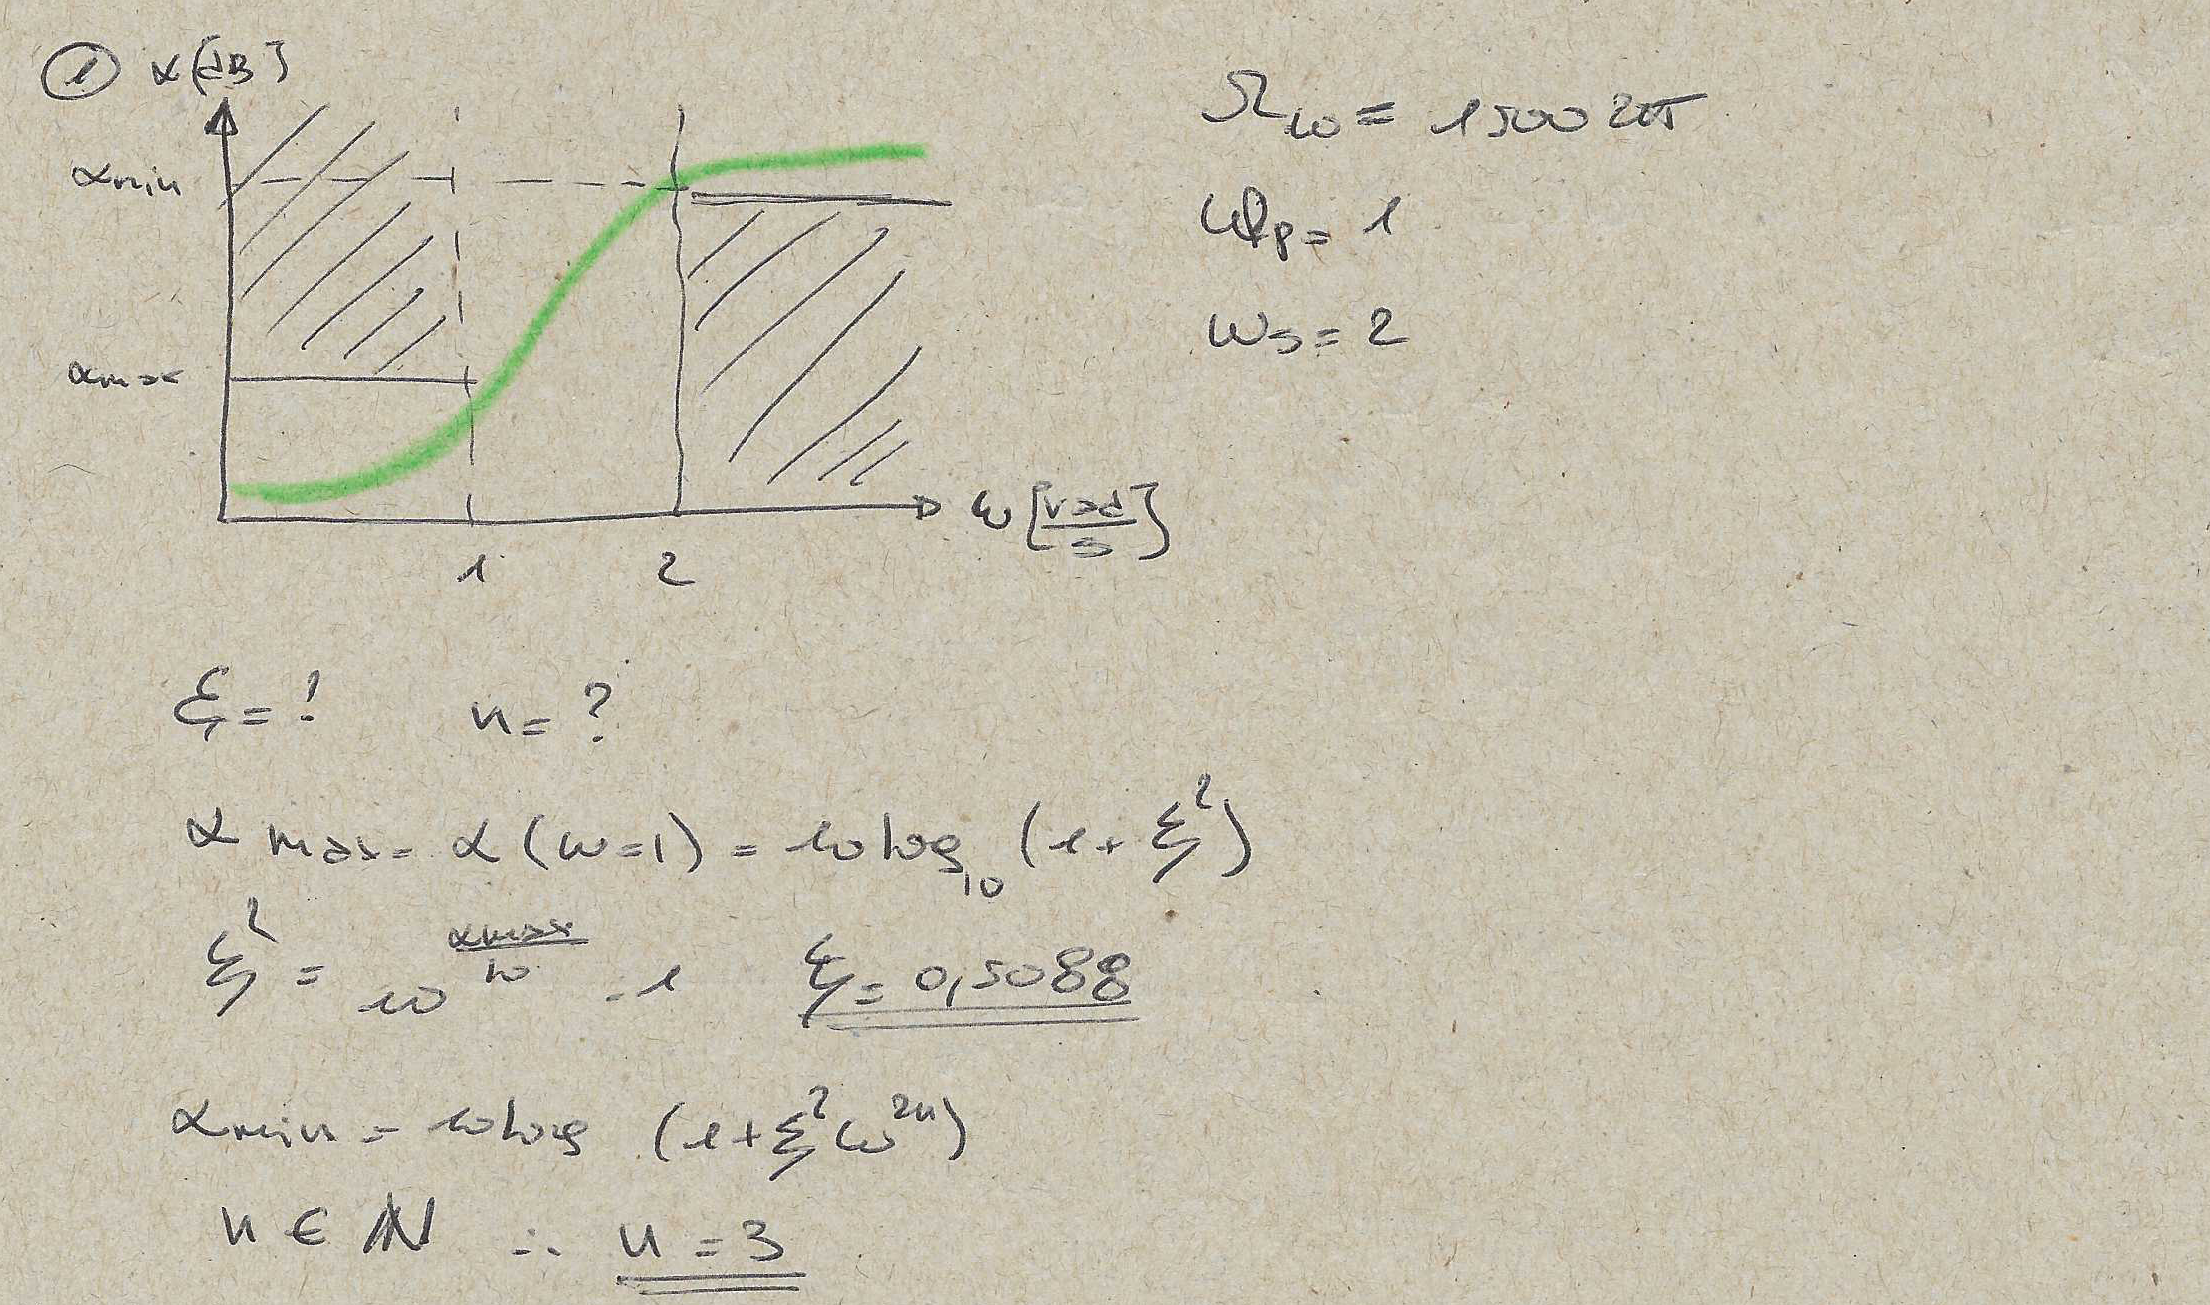 ① α[dB]
αmin
αmax
1 2
ω [rad/s]
Ωω = 1500 2π
ωp = 1
ωs = 2
ξ = ? n = ?
αmax = α(ω=1) = 10 log₁₀ (1 + ξ²)
ξ² = 10^(αmax/10) - 1 ξ = 0,5088
αmin = 10 log (1 + ξ² ω²ⁿ)
n ∈ ℕ ∴ n = 3